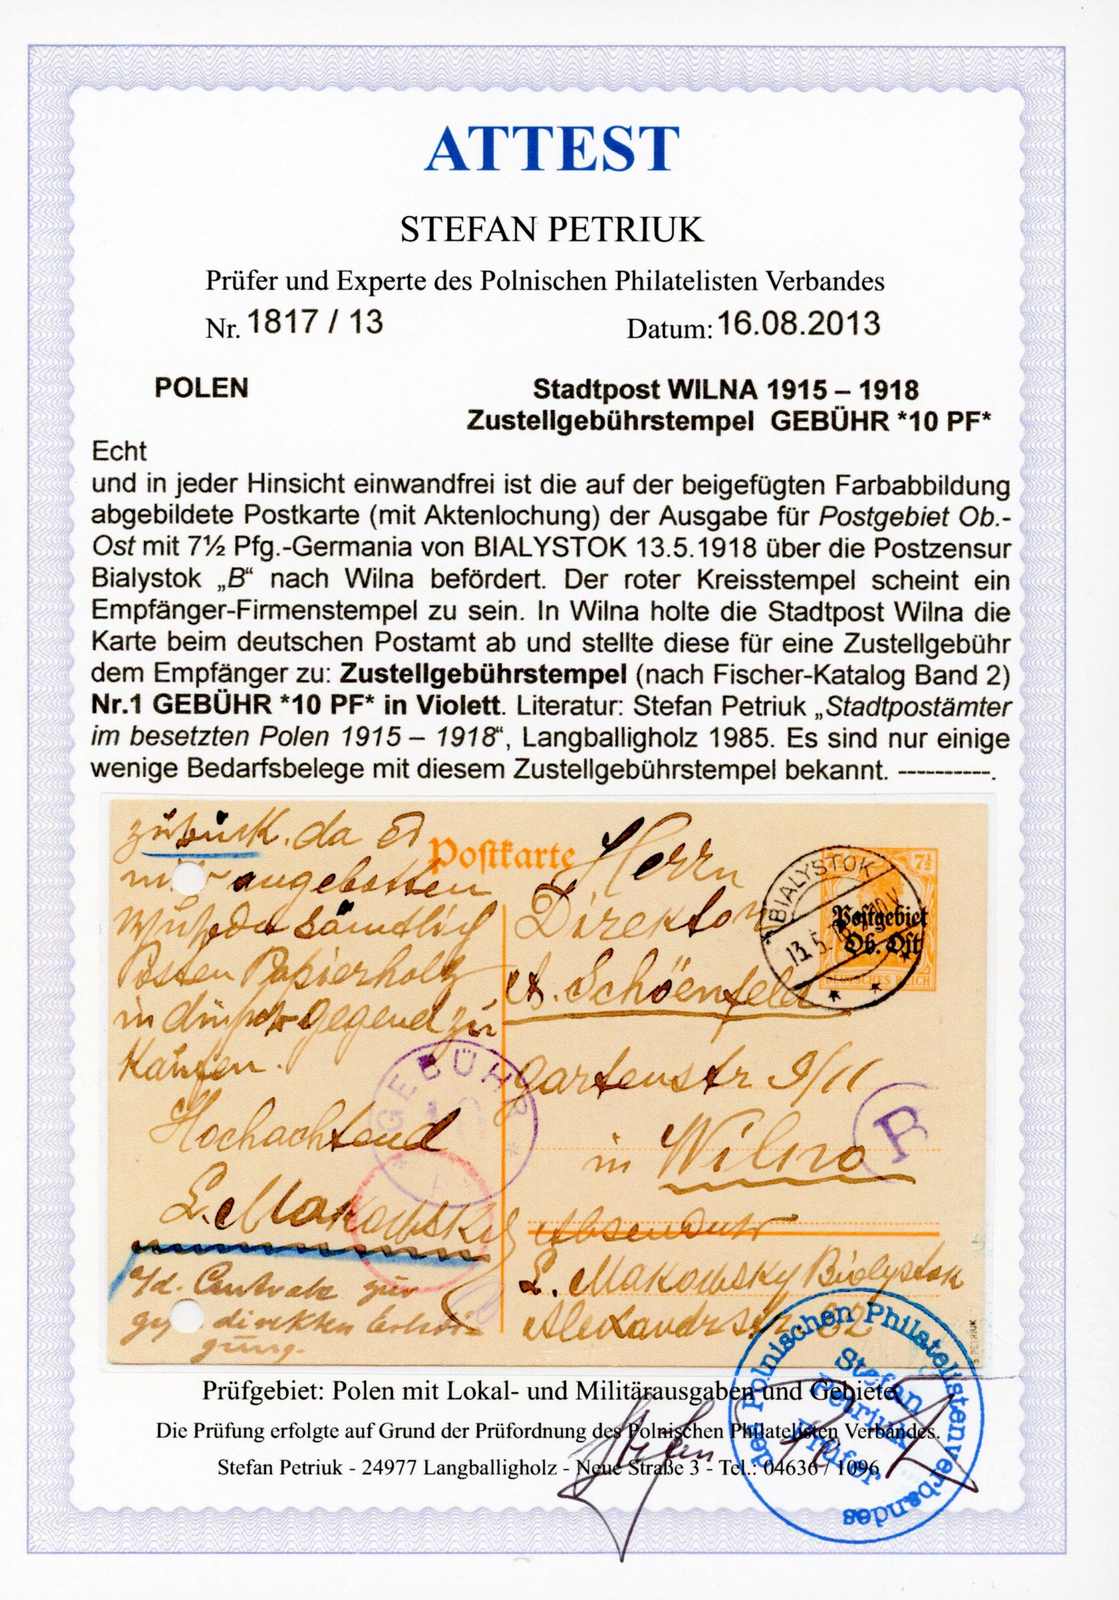 ATTEST
STEFAN PETRIUK
Prüfer und Experte des Polnischen Philatelisten Verbandes
Nr. 1817 / 13 Datum: 16.08.2013
POLEN
Stadtpost WILNA 1915 – 1918
Zustellgebührstempel GEBÜHR *10 PF*
Echt
und in jeder Hinsicht einwandfrei ist die auf der beigefügten Farbabbildung
abgebildete Postkarte (mit Aktenlochung) der Ausgabe für Postgebiet Ob.-
Ost mit 7½ Pfg.-Germania von BIALYSTOK 13.5.1918 über die Postzensur
Bialystok „B“ nach Wilna befördert. Der roter Kreisstempel scheint ein
Empfänger-Firmenstempel zu sein. In Wilna holte die Stadtpost Wilna die
Karte beim deutschen Postamt ab und stellte diese für eine Zustellgebühr
dem Empfänger zu: Zustellgebührstempel (nach Fischer-Katalog Band 2)
Nr.1 GEBÜHR *10 PF* in Violett. Literatur: Stefan Petriuk „Stadtpostämter
im besetzten Polen 1915 – 1918“, Langballigholz 1985. Es sind nur einige
wenige Bedarfsbelege mit diesem Zustellgebührstempel bekannt. ----------.
zurück. da
angebotten
sämtlich
Posten Papierholz
in gegend zu
Kaufen.
Hochachtend
L. Makowsky
a/d. Centrale zur
direkten
gung.
Postkarte
Herrn
Direktor
A. Schöenfeld
Gartenstr 9/11
in Wilno
Absender
L. Makowsky Bialystok
Alexandrstr 22
BIALYSTOK
13.5.
7½
Postgebiet
Ob. Ost
DEUTSCHES REICH
GEBÜHR
B
PETRIUK
Prüfgebiet: Polen mit Lokal- und Militärausgaben und Gebiete
Die Prüfung erfolgte auf Grund der Prüfordnung des Polnischen Philatelisten Verbandes.
Stefan Petriuk - 24977 Langballigholz - Neue Straße 3 - Tel.: 04636 / 1096
des Polnischen Philatelistenverbandes
Stefan
Petriuk
Prüfer